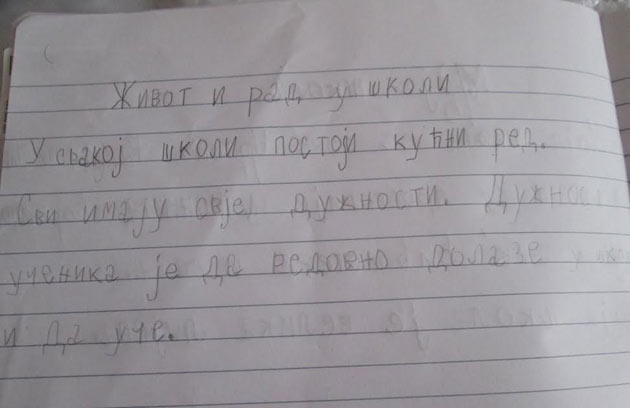 Живот и рад у школи
У свакој школи постоји кућни ред.
Сви имају овје дужности. Дужнос
ученика је да редовно долазе у
и да уче.